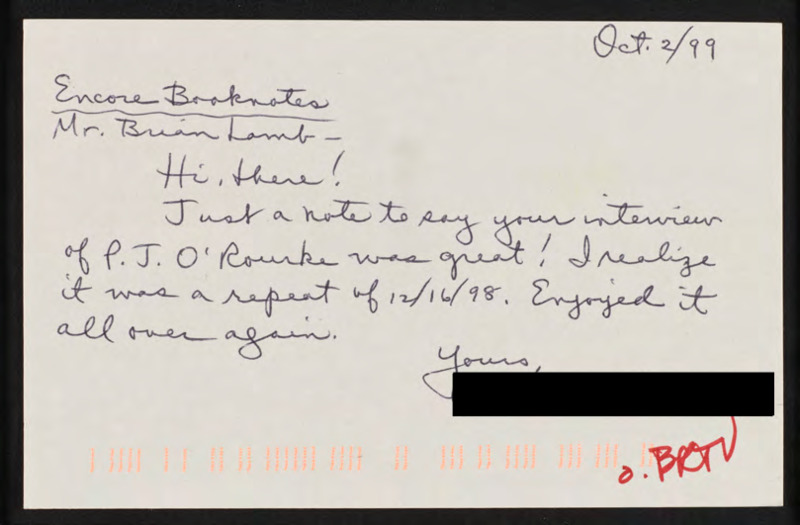 Oct. 2/99
Encore Booknotes
Mr. Brian Lamb –
Hi, there!
Just a note to say your interview
of P.J. O'Rourke was great! I realize
it was a repeat of 12/16/98. Enjoyed it
all over again.
Yours,